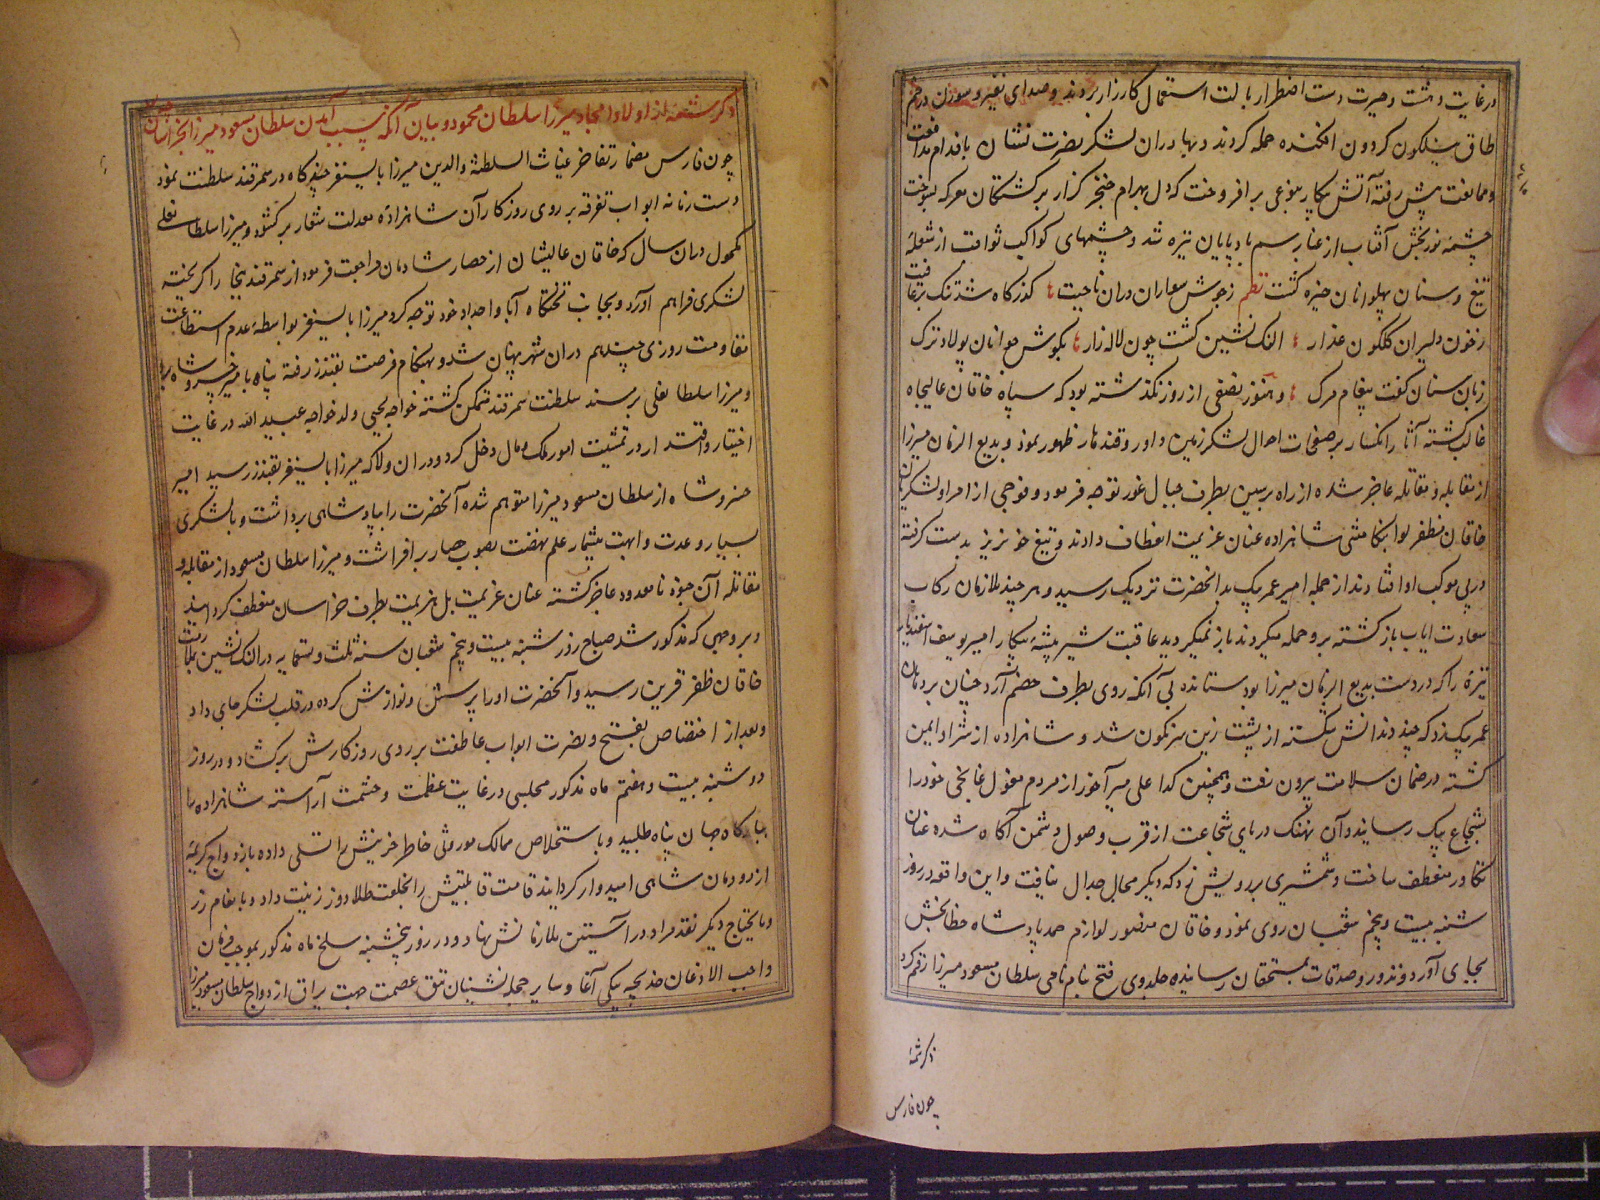 در غایت دهشت و حیرت دست اضطرار بالت استعمال کارزار بردند و صدای نفیر و سورن در خم
طاق نیلگون کردون افکنده حمله کردند و بهادران لشکر نصرت نشان باقدام مدافعت
و ممانعت پیش رفته آتش پیکار بنوعی برافروخت که دل بهرام خنجر گزار بر کشتگان معرکه بسوخت
چشمه نوربخش آفتاب از غبار سم بادپایان تیره شد و چشمهای کواکب ثواقب از شعله
تیغ و سنان پهلوانان خیره کشت نظم ز جوش سواران دران ناحیت کذرکاه شد تنک بر عافیت
ز خون دلیران کلکون عذار النک نشین کشت چون لاله زار بکوش جوانان پولاد ترک
زبان سنان کفت پیغام مرک و هنوز نصفی از روز نکذشته بود که سپاه خاقان عالیجاه
غالب کشته آثار انکسار بر صفحات احوال لشکر زمین داور و قندهار ظهور نمود و بدیع الزمان میرزا
از مقابله و مقاتله عاجز شده از راه بطرف جبال غور توجه فرمود و فوجی از امرا و لشکریان
خاقان مظفر لوا بتکامشی شاهزاده عنان عزیمت انعطاف دادند و تیغ خونریز بدست کرفته
در پی موکب او افتادند از جمله امیر عمر بیک بدانحضرت نزدیک رسید و هر چند ملازمان رکاب
سعادت ایاب باز کشته برو حمله میکردند باز نمیکردید عاقبت شیر بیشه پیکار امیر یوسف
نیزه را که در دست بدیع الزمان میرزا بود ستانده بی آنکه روی بطرف خصم آرد چنان بر دهان
عمر بیک زد که چند دندانش شکسته از پشت زین سرنکون شد و شاهزاده از شر او ایمن
کشته در ضمان سلامت بیرون رفت و همچنین کدا علی میرآخور از مردم مغول غانجی خود را
بشجاع بیک رسانید و آن نهنک دریای شجاعت از قرب وصول دشمن آکاه شده عنان
تکاور منعطف ساخت و شمشیری بر رویش زد که دیکر مجال جدال نیافت و این واقعه در روز
شنبه بیست و پنجم شعبان روی نمود و خاقان منصور لوازم حمد پادشاه خطابخش
بجای آورد و نذور و صدقات بمستحقان رسانیده جلدوی فتح بنام نامی سلطان مسعود میرزا رقم کرد
ذکر شمه
چون فارس
ذکر شمه از اولاد امجاد میرزا سلطان محمود و بیان آنکه سبب آمدن سلطان مسعود میرزا بخراسان چه بود
چون فارس مضمار تفاخر غیاث السلطنه والدین میرزا بایسنغر چند کاه در سمرقند سلطنت نمود
دست زمانه ابواب تفرقه بر روی روزکار آن شاهزاده معدلت شعار برکشود و میرزا سلطانعلی
کمحول دران سال که خاقان عالیشان از حصار شادمان مراجعت فرمود از سمرقند ببخارا کریخته
لشکری فراهم آورد و بجانب تختکاه آبا و اجداد خود توجه کرد میرزا بایسنغر بواسطه عدم استطاعت
مقاومت روزی چند هم دران شهر پنهان شد و بهنکام فرصت بقندز رفته پناه با میر خسرو شاه برد
و میرزا سلطانعلی بر مسند سلطنت سمرقند متمکن کشته خواجه یحیی ولد خواجه عبید الله در غایت
اختیار و اقتدار در تمشیت امور ملک و مال دخل کرد و دران ولا که میرزا بایسنغر بقندز رسید امیر
خسرو شاه از سلطان مسعود میرزا متوهم شده آنحضرت را بپادشاهی برداشت و با لشکری
بسیار و عدت و اهبت بیشمار علم نهضت بصوب حصار برافراشت و میرزا سلطان مسعود از مقابله و
مقاتله آن جنود نامعدود عاجز کشته عنان عزیمت بل هزیمت بطرف خراسان منعطف کردانید
و بر وجهی که مذکور شد صباح روز شنبه بیست و پنجم شعبان سنه ثلث و تسعمایه در النک نشین بملازمت
خاقان ظفر قرین رسید و آنحضرت او را پرسش و نوازش کرده در قلب لشکر جای داد
و بعد از اختصاص بفتح و نصرت ابواب عاطفت بر روی روزکارش برکشاد و در روز
دوشنبه بیست و هفتم ماه مذکور مجلسی در غایت عظمت و حشمت آراسته شاهزاده را
ببارکاه جهان پناه طلبید و باستخلاص ممالک موروثی خاطر حزینش را تسلی داده بازدواج کریمه
از دودمان شاهی امیدوار کردانید قامت قابلیتش را بخلعت طلادوز زینت داد و بانعام زر
و مایحتاج دیکر نقد مراد در آستین ملازمانش نهاد و در روز پنجشنبه سلخ ماه مذکور بموجب فرمان
واجب الاذعان خدیجه بیکی آغا و سایر حجله نشینان تتق عصمت جهت یراق ازدواج سلطان مسعود میرزا